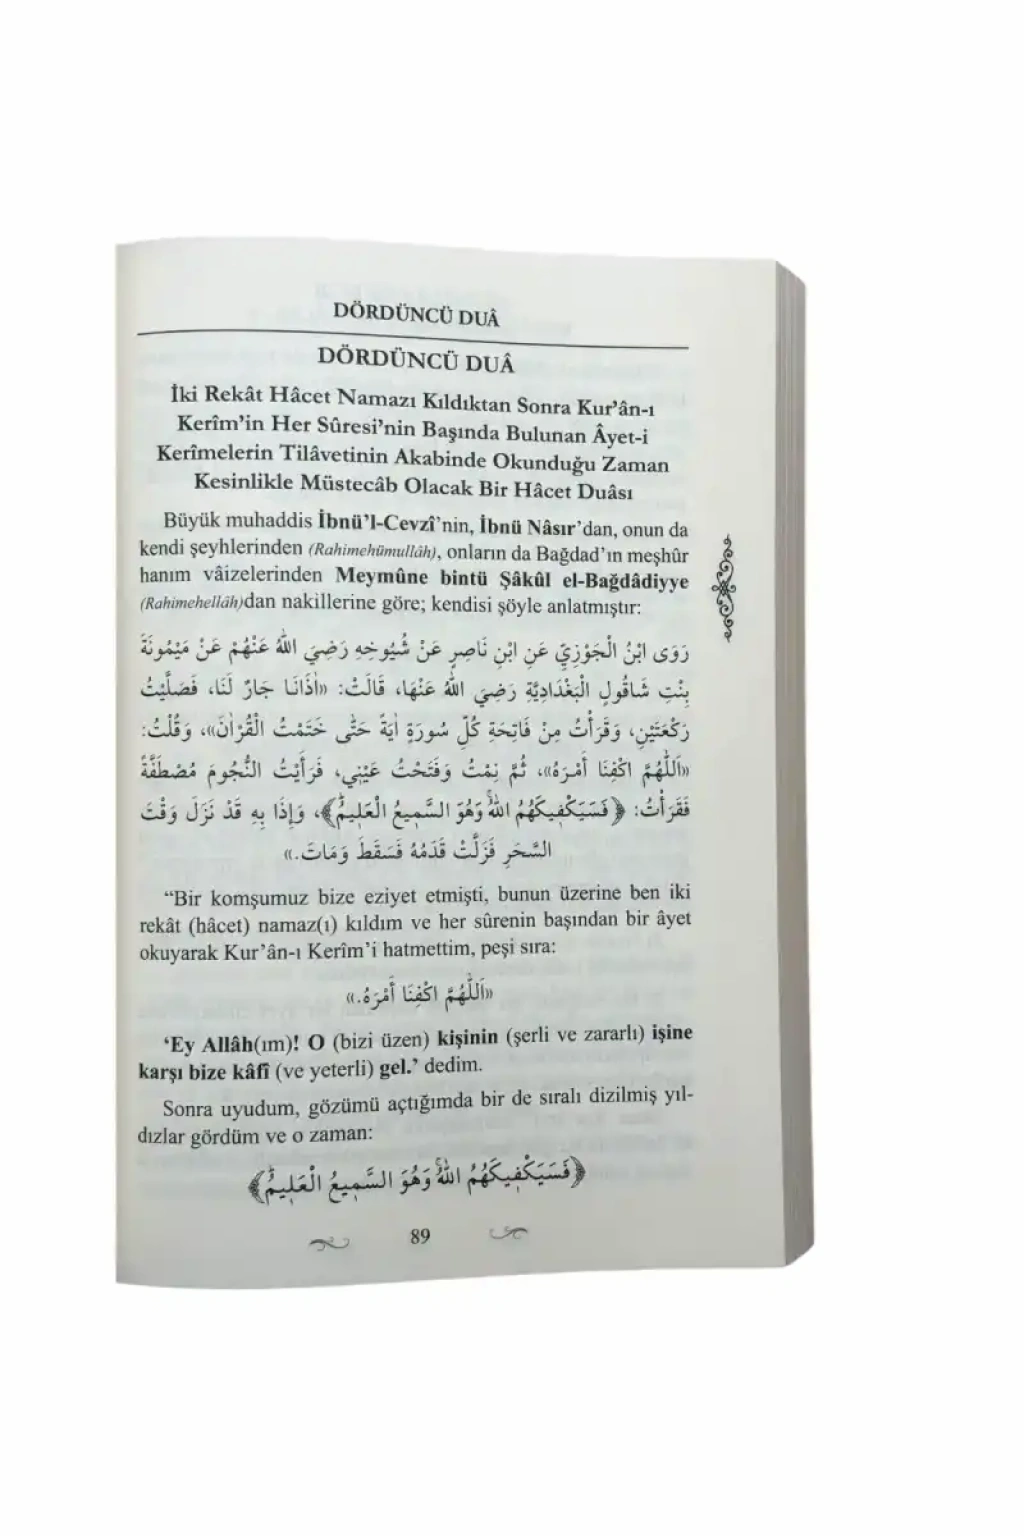 DÖRDÜNCÜ DUÂ
DÖRDÜNCÜ DUÂ
İki Rekât Hâcet Namazı Kıldıktan Sonra Kur’ân-ı
Kerîm’in Her Sûresi’nin Başında Bulunan Âyet-i
Kerîmelerin Tilâvetinin Akabinde Okunduğu Zaman
Kesinlikle Müstecâb Olacak Bir Hâcet Duâsı
Büyük muhaddis İbnü’l-Cevzî’nin, İbnü Nâsır’dan, onun da
kendi şeyhlerinden (Rahimehümullâh), onların da Bağdad’ın meşhûr
hanım vâizelerinden Meymûne bintü Şâkûl el-Bağdâdiyye
(Rahimehellâh)dan nakillerine göre; kendisi şöyle anlatmıştır:
رَوَى ابْنُ الْجَوْزِيِّ عَنِ ابْنِ نَاصِرٍ عَنْ شُيُوخِهِ رَضِيَ اللّٰهُ عَنْهُمْ عَنْ مَيْمُونَةَ
بِنْتِ شَاقُولٍ الْبَغْدَادِيَّةِ رَضِيَ اللّٰهُ عَنْهَا، قَالَتْ: «اٰذَانَا جَارٌ لَنَا، فَصَلَّيْتُ
رَكْعَتَيْنِ، وَقَرَأْتُ مِنْ فَاتِحَةِ كُلِّ سُورَةٍ اٰيَةً حَتّٰى خَتَمْتُ الْقُرْاٰنَ»، وَقُلْتُ:
«اَللّٰهُمَّ اكْفِنَا أَمْرَهُ»، ثُمَّ نِمْتُ وَفَتَحْتُ عَيْنِي، فَرَأَيْتُ النُّجُومَ مُصْطَفَّةً
فَقَرَأْتُ: ﴿فَسَيَكْفِيكَهُمُ اللّٰهُۚ وَهُوَ السَّمِيعُ الْعَلِيمُۜ﴾، وَإِذَا بِهِ قَدْ نَزَلَ وَقْتَ
السَّحَرِ فَزَلَّتْ قَدَمُهُ فَسَقَطَ وَمَاتَ.»
“Bir komşumuz bize eziyet etmişti, bunun üzerine ben iki
rekât (hâcet) namaz(ı) kıldım ve her sûrenin başından bir âyet
okuyarak Kur’ân-ı Kerîm’i hatmettim, peşi sıra:
«اَللّٰهُمَّ اكْفِنَا أَمْرَهُ.»
‘Ey Allâh(ım)! O (bizi üzen) kişinin (şerli ve zararlı) işine
karşı bize kâfî (ve yeterli) gel.’ dedim.
Sonra uyudum, gözümü açtığımda bir de sıralı dizilmiş yıl-
dızlar gördüm ve o zaman:
﴿فَسَيَكْفِيكَهُمُ اللّٰهُۚ وَهُوَ السَّمِيعُ الْعَلِيمُۜ﴾
89